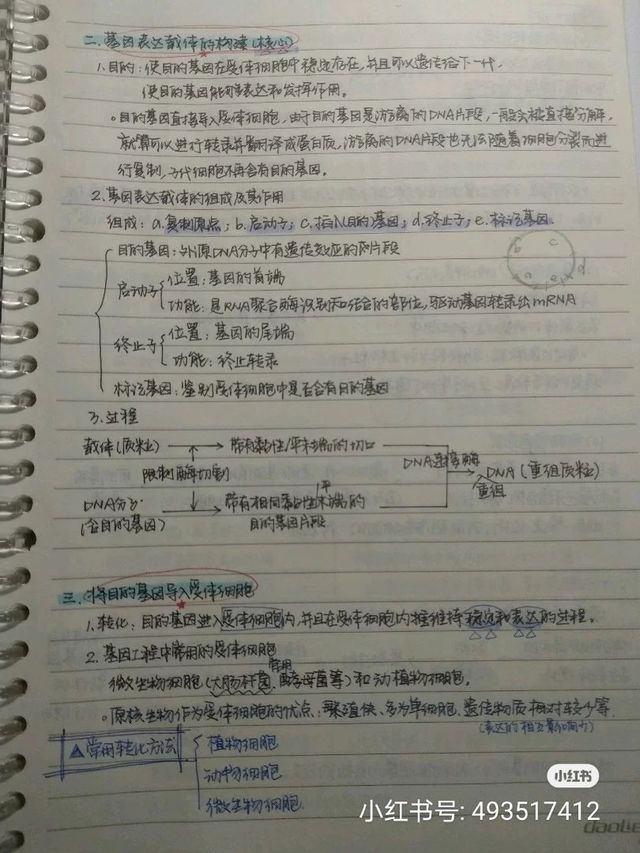 二.基因表达载体的构建(核心)
1.目的:使目的基因在受体细胞中稳定存在,并且可以遗传给下一代,
使目的基因能够表达和发挥作用。
。目的基因直接导入受体细胞,由于目的基因是游离的DNA片段,一般会被直接分解,
就算可以进行转录并翻译成蛋白质,游离的DNA片段也无法随着细胞分裂而进
行复制,子代细胞不再含有目的基因。
2.基因表达载体的组成及其作用
组成:a.复制原点;b.启动子;c.插入目的基因;d.终止子;e.标记基因
b c
a e d
目的基因:外源DNA分子中有遗传效应的片段
启动子 位置:基因的首端
功能:是RNA聚合酶识别和结合的部位,驱动基因转录出mRNA
终止子 位置:基因的尾端
功能:终止转录
标记基因:鉴别受体细胞中是否含有目的基因
3.过程
载体(质粒) 带有黏性/平末端的切口
限制酶切割 DNA连接酶 DNA(重组质粒)
重组
DNA分子 带有相同黏性/平末端的
(含目的基因) 目的基因片段
三.将目的基因导入受体细胞
1.转化:目的基因进入受体细胞内,并且在受体细胞内维持稳定和表达的过程。
2.基因工程中常用的受体细胞
常用
微生物细胞(大肠杆菌、酵母菌等)和动植物细胞。
。原核生物作为受体细胞的优点:繁殖快、多为单细胞、遗传物质相对较少等
△常用转化方法 植物细胞
动物细胞
微生物细胞
小红书
小红书号: 493517412
daolin